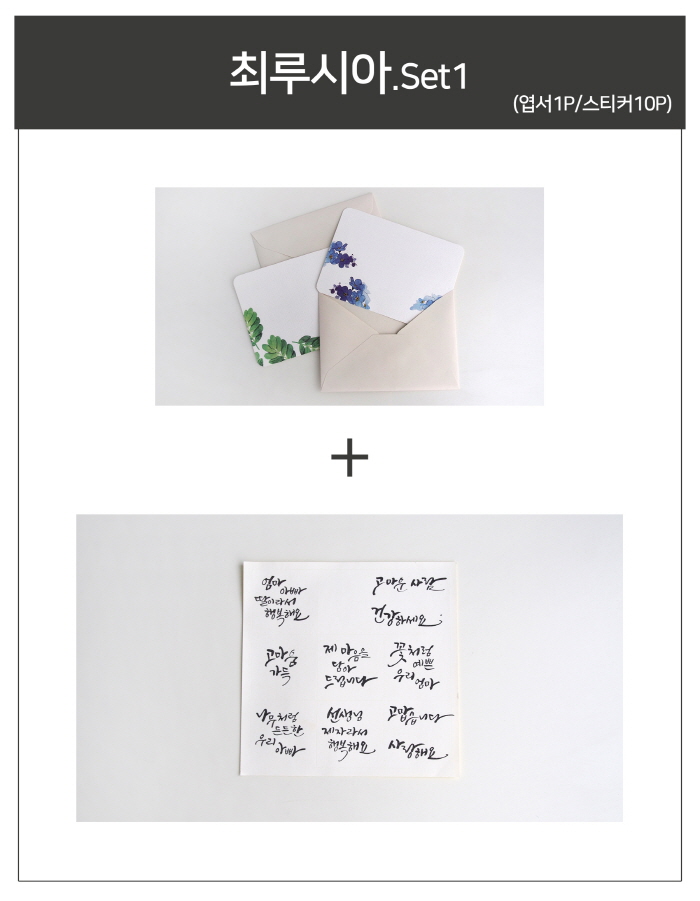 최루시아.Set1
(엽서1P/스티커10P)
+
엄마
아빠
딸이라서
행복해요
고마운 사람
건강하세요;
고마움
가득
제 마음을
담아
드립니다
꽃처럼
예쁜
우리 엄마
나무처럼
든든한
우리
아빠
선생님
제자라서
행복해요
고맙습니다
사랑해요